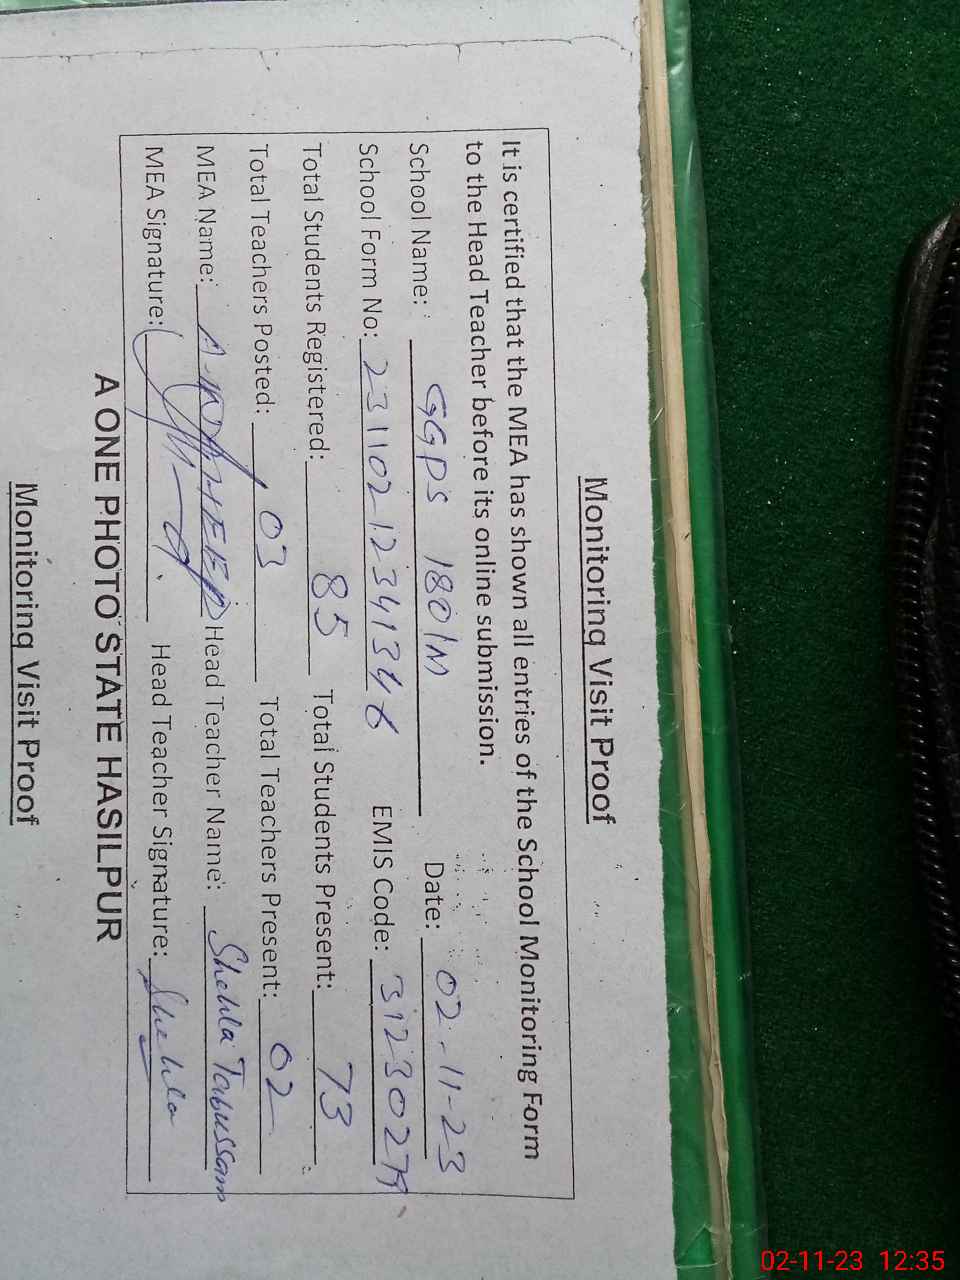 Monitoring Visit Proof
It is certified that the MEA has shown all entries of the School Monitoring Form
to the Head Teacher before its online submission.
School Name: GGPS 180/M Date: 02-11-23
School Form No: EMIS Code:
Total Students Registered: 85 Total Students Present: 73
Total Teachers Posted: 03 Total Teachers Present: 02
MEA Name: Head Teacher Name: Shehla Tabussam
MEA Signature: Head Teacher Signature: Shehla
A ONE PHOTO STATE HASILPUR
Monitoring Visit Proof
02-11-23 12:35